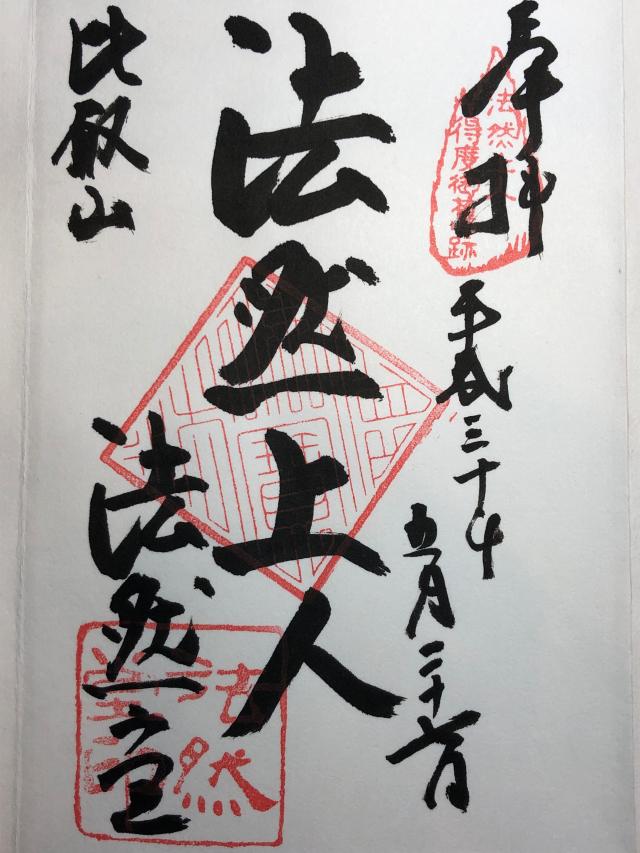 奉拝
法然上人
得度御旧跡
平成三十年
五月二十六日
法然上人
比叡山
法然堂
法然